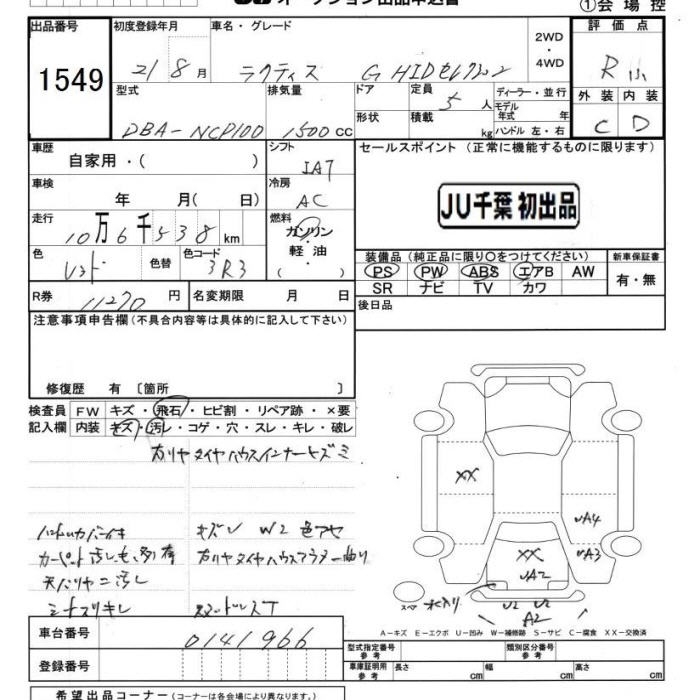 オークション出品申込書
①会場控
出品番号 1549
初度登録年月 21/8月
車名・グレード ラクティス G HIDセレクション
2WD・4WD
評価点 R
外装 C 内装 D
型式 DBA-NCP100
排気量 1500cc
ドア 形状
定員 5人
積載 kg
ディーラー・並行
モデル年式 年
ハンドル 左・右
車歴 自家用・( )
シフト IAT
セールスポイント (正常に機能するものに限ります)
JU千葉 初出品
車検 年 月( 日)
冷房 AC
走行 10万6千538km
燃料 ガソリン・軽油・( )
色 レッド 色替
色コード 3R3
装備品 (純正品に限り〇をつけてください)
PS PW ABS エアB AW
SR ナビ TV カワ
新車保証書 有・無
R券 11270円
名変期限 月 日
後日品
注意事項申告欄 (不具合内容等は具体的に記入して下さい)
修復歴 有 〔箇所 〕
検査員記入欄
FW キズ・飛石・ヒビ割・リペア跡・×要
内装 キズ・汚レ・コゲ・穴・スレ・キレ・破レ
右リヤタイヤハウスインナーキズミ
キズレ W2 色アセ
右リヤタイヤハウスアウター曲り
天バリヤニ汚し
シートスリキレ
XX
UA4
UA3
XX
UA2
U2 U2
A2
スペア 水入り
A-キズ E-エクボ U-凹み W-補修跡 S-サビ C-腐食 XX-交換済
車台番号 0141966
登録番号
型式指定番号 参考
類別区分番号 参考
車庫証明用 参考 長さ cm 幅 cm 高さ cm
希望出品コーナー (コーナーは各会場により異なります。)